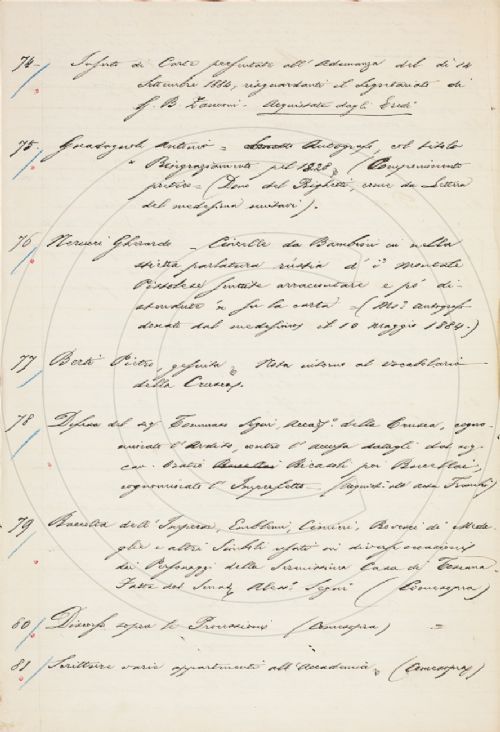 74 – Inserto di Carte presentate all' Adunanza del dì 14
Settembre 1880, risguardanti il Segretariato di
G. B. Zannoni. Acquistate dagli Eredi
75. Guadagnoli Antonio = Autografo, col titolo
" Ringraziamento pel 1828 " (Componimento
poetico = (Dono del Righetti, come da Lettera
del medesimo unitavi).
76 Nerucci Gherardo – Cinelle da Bambini in nella
stietta parlatura rustia d' i' Montale
Pistolese sentute arraccontare e po' di-
stendute 'n su la carta = (Ms. autografo
donato dal medesimo il 10 maggio 1884.)
77 Berti Pietro, gesuita, Note intorno al Vocabolario
della Crusca.
78 Difesa del sig Tommaso Segni, Accad.º della Crusca, cogno-
minato l' Ardito, contro l' accusa datagli dal sig.
cav. Orazio Ricasoli poi Rucellai,
cognominato l' Imperfetto – (Acquisti
79 Raccolta dell' Imprese, Emblemi, Cimieri, Rovesci di Meda-
glie e altri Simboli usati in diverse occasioni
dai Personaggi della Serenissima Casa di Toscana.
Fatta dal Senat. Aless.º Segni (Comesopra)
80 Discorso sopra le (Comesopra) =
81 Scritture varie appartenenti all' Accademia, (Comesopra)